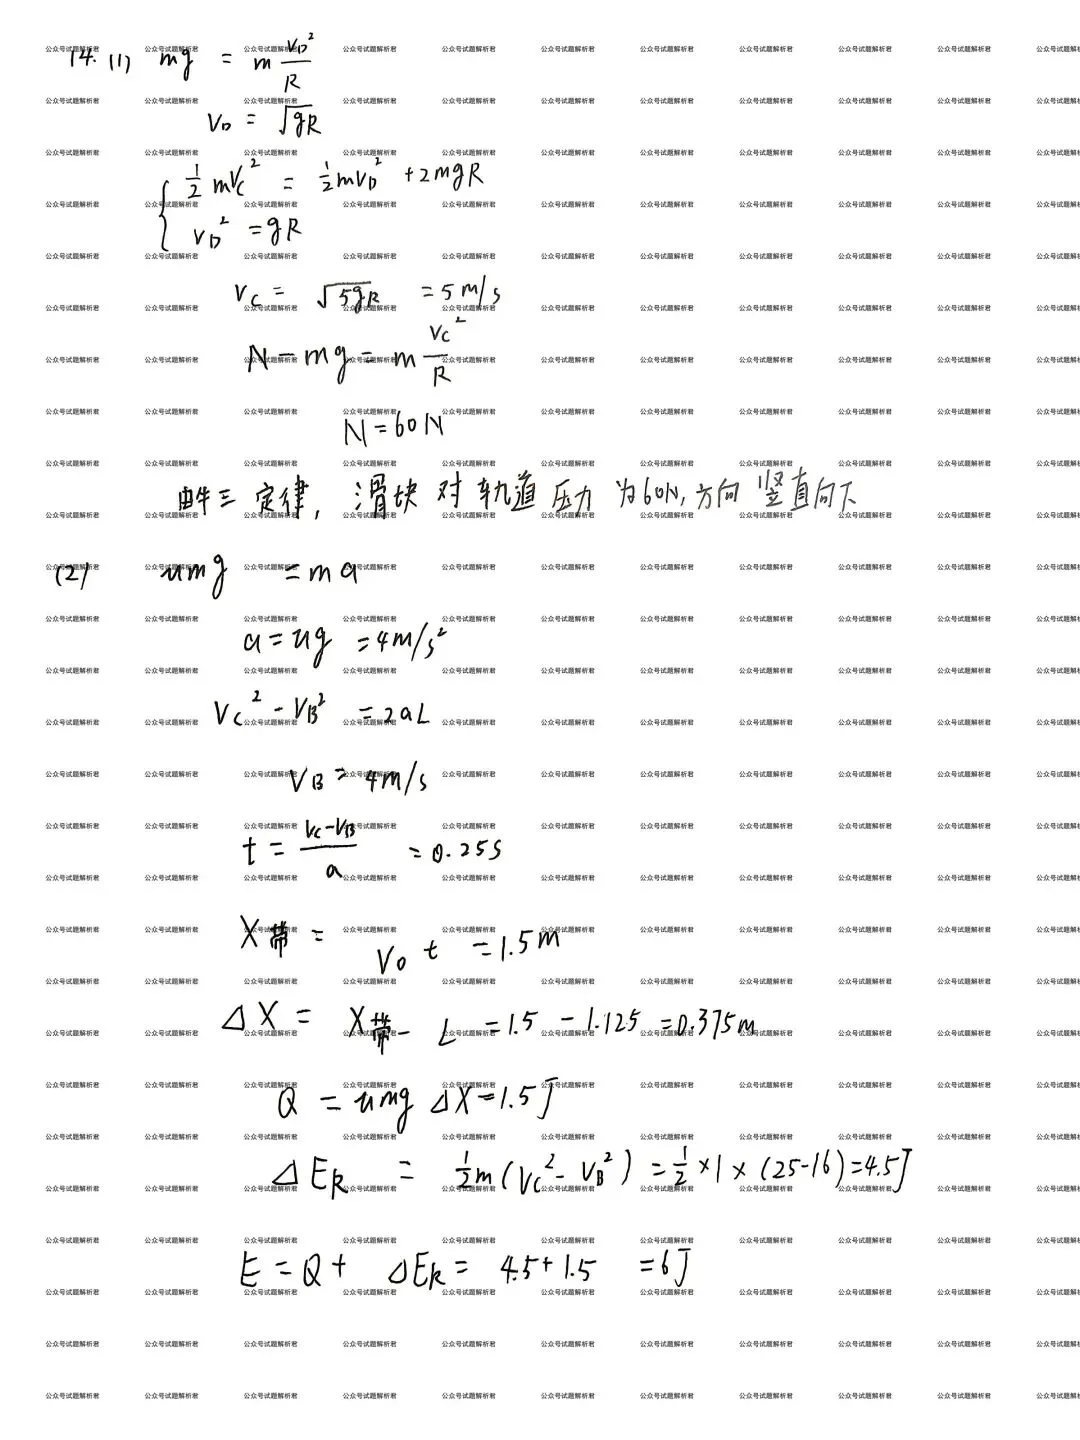 14. (1) mg = m v_D²/R
v_D = √gR
½mv_C² = ½mv_D² + 2mgR
v_D² = gR
v_C = √5gR = 5m/s
N - mg = m v_C²/R
N = 60N
由牛三定律, 滑块对轨道压力为60N, 方向竖直向下
(2) umg = ma
a = ug = 4m/s²
v_C² - v_B² = 2aL
v_B = 4m/s
t = (v_C - v_B)/a = 0.25s
X带 = v₀t = 1.5m
△X = X带 - L = 1.5 - 1.125 = 0.375m
Q = umg△X = 1.5J
△E_k = ½m(v_C² - v_B²) = ½×1×(25-16) = 4.5J
E = Q + △E_k = 4.5 + 1.5 = 6J
公众号试题解析君